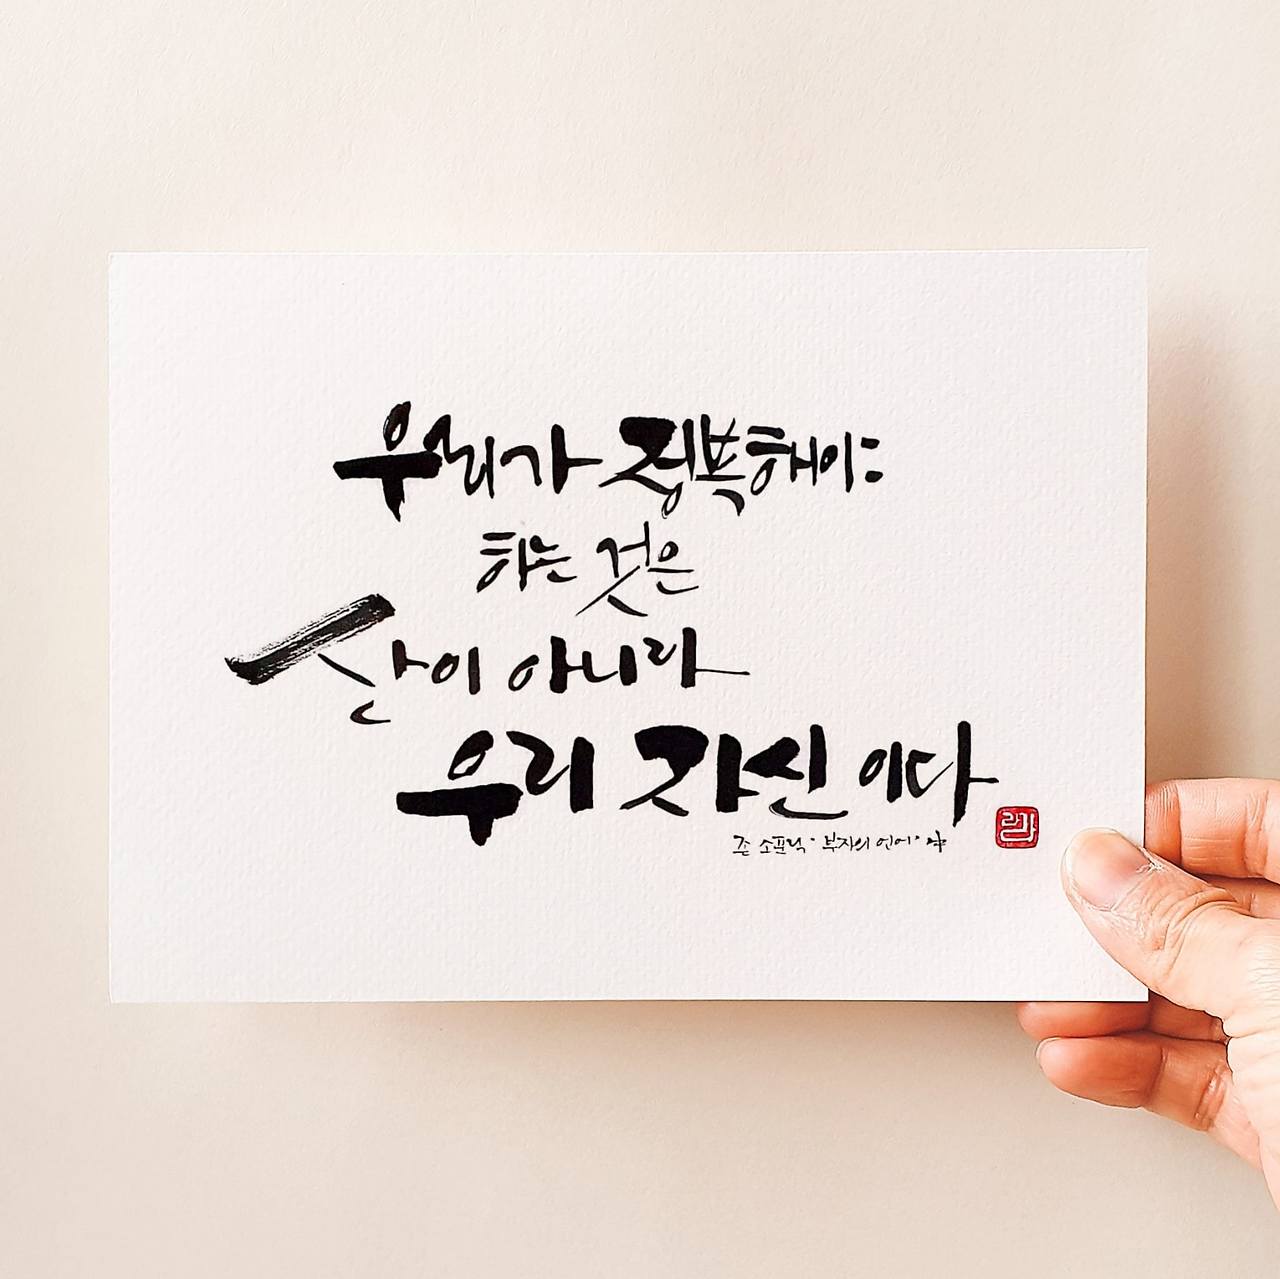 우리가 정복해야
하는 것은
산이 아니라
우리 자신이다
존 소포릭 "부자의 언어" 中